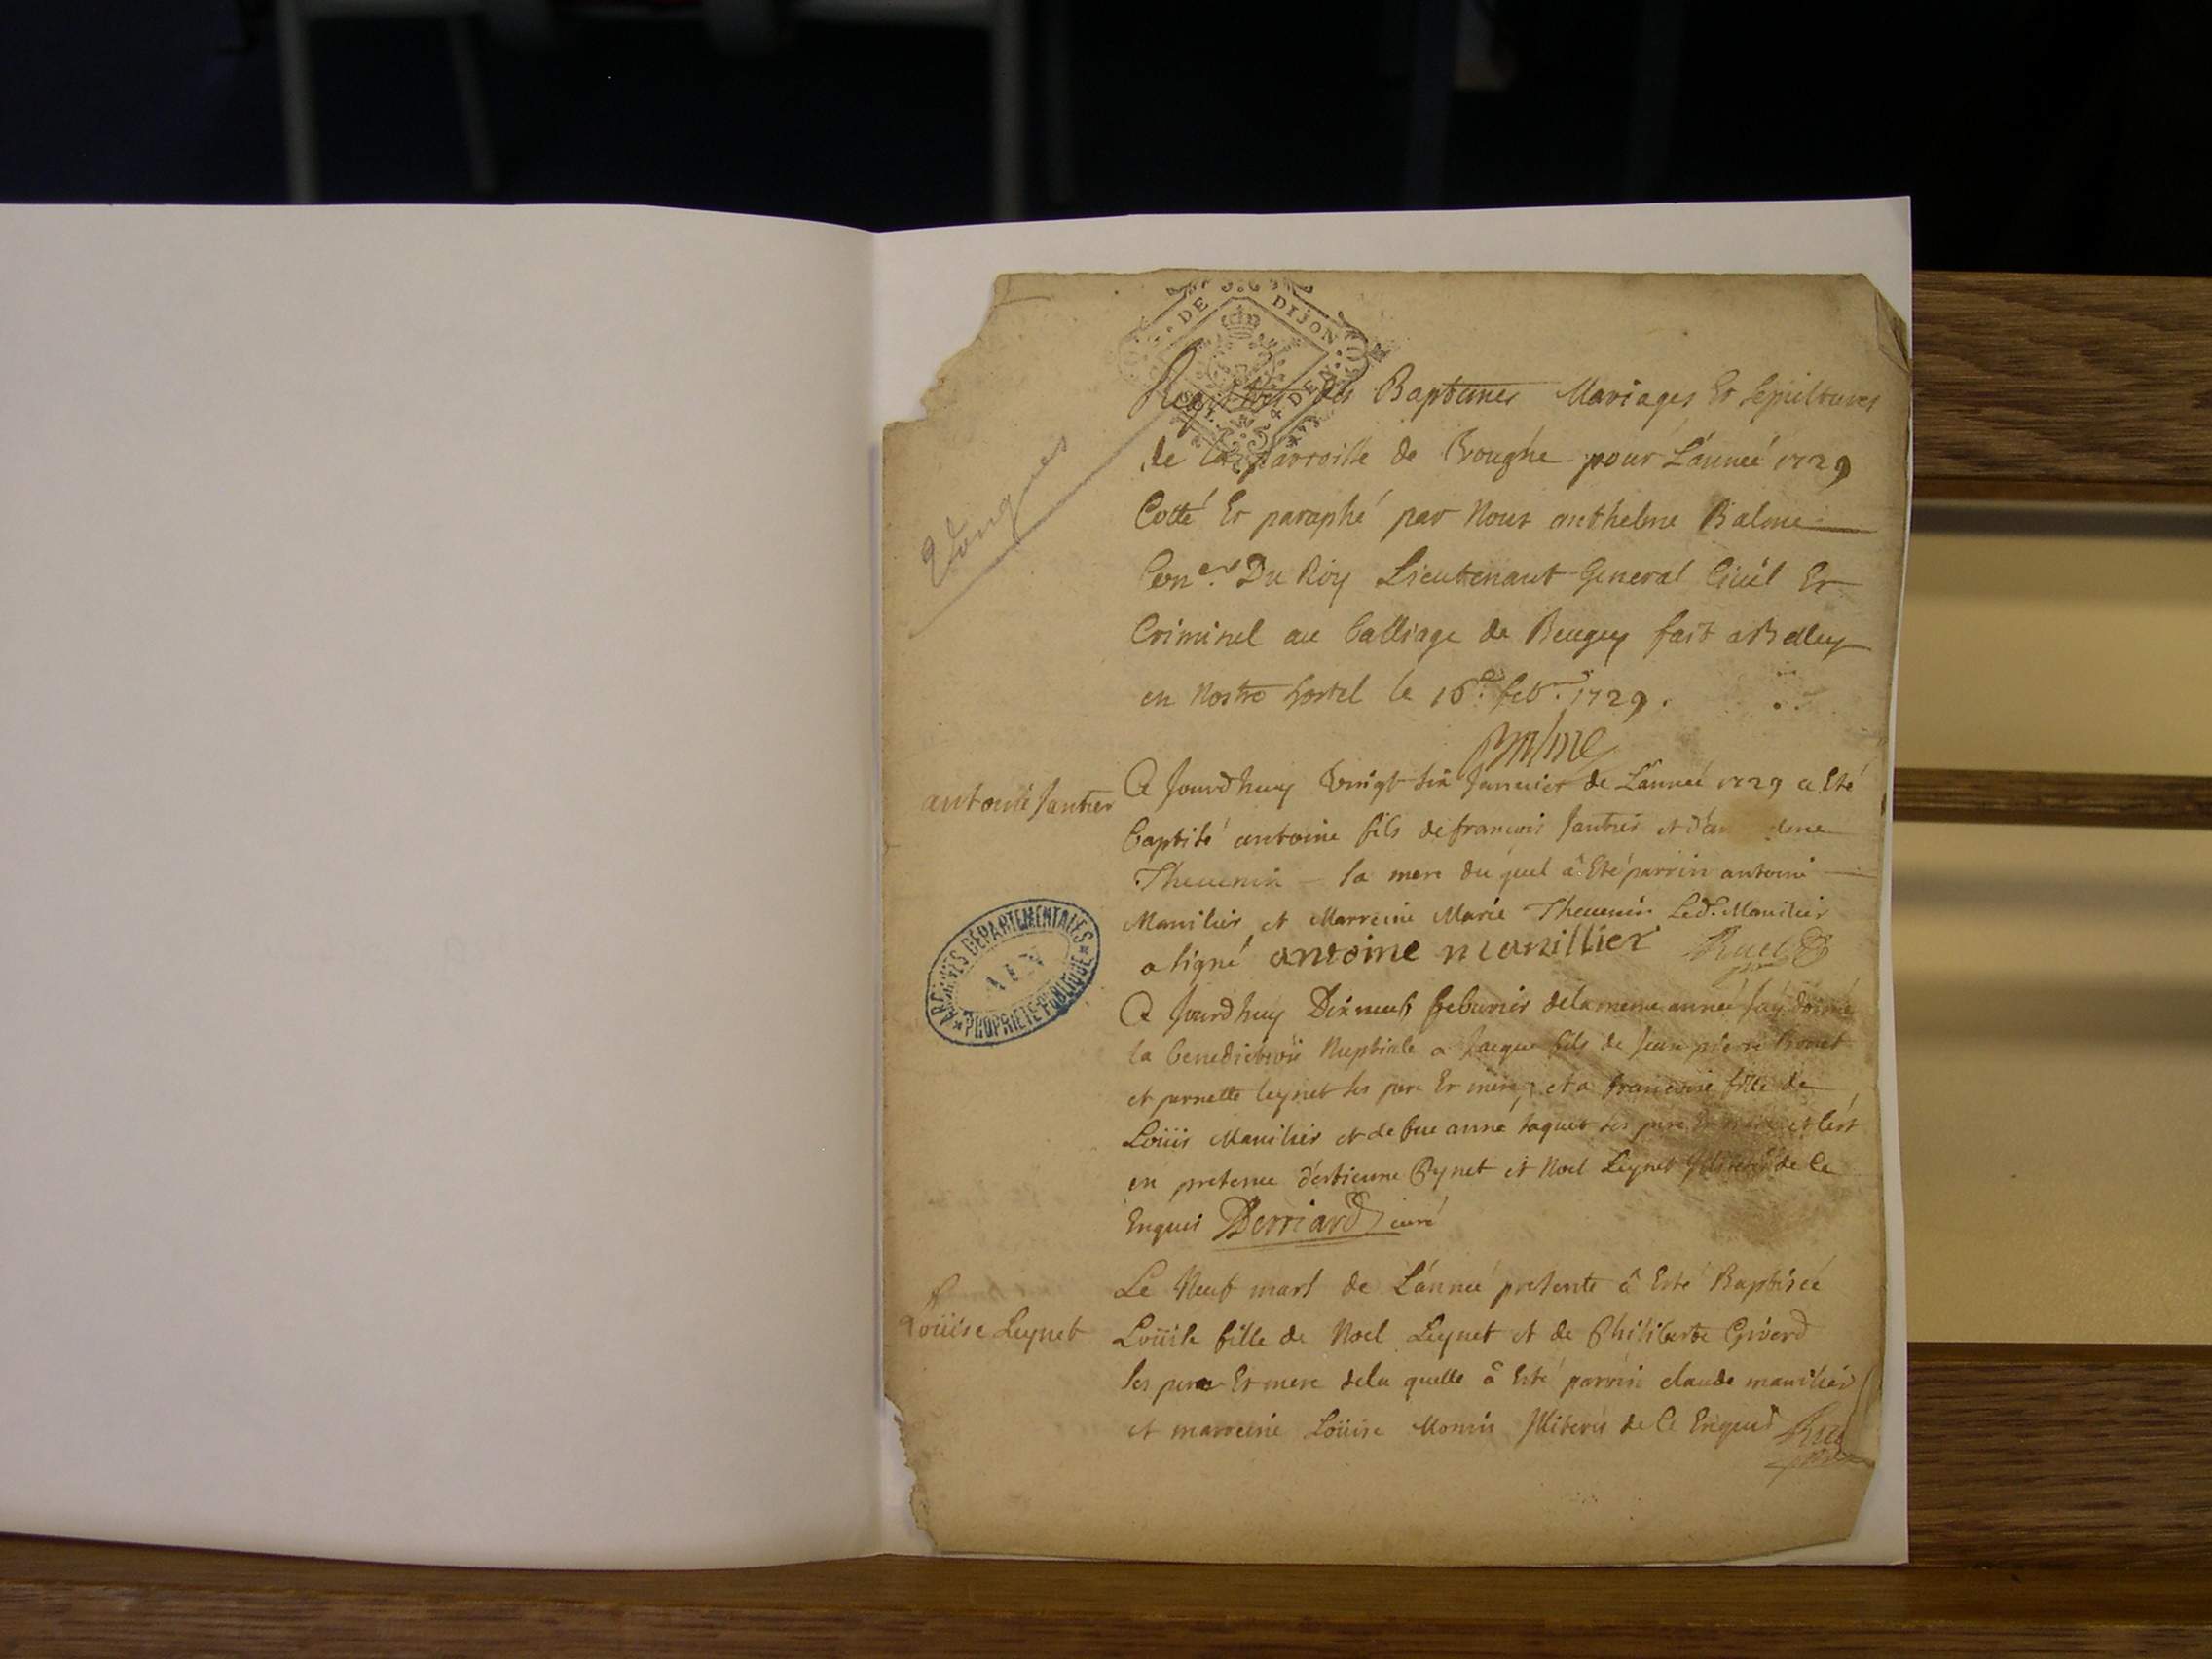 DE DIJON
Registre des Baptemes Mariages Et Sepultures
de la parroisse de Vough̃e pour L'année 1729
Cotté Et paraphé par Nous anthelme Balme
Con.er Du Roy Lieutenant General Civil Et
Criminel au balliage de Beugey fait a Belley
en Nostre hostel le 16.e feb.r 1729.
Balme
Vongnes
antoine Jantier
A Jourdhuy Vingt six Janvier de L'année 1729 a Eté
baptisé antoine fils de françois Jantier et
Thevenin la mere du quel â Eté parrin antoine
Manilier et Marreine Marie Thevenin Led. Manilier
a signé antoine manillier
ARCHIVES DÉPARTEMENTALES
AIN
PROPRIÉTÉ PUBLIQUE
A Jourdhuy Dixneuf febvrier de la meme année j'ay donné
la benediction Nuptiale a Jacque fils de Jean pierre
et pernette leynet ses pere Et mere, et a francoise fille de
Loüis Manilier et de fue anne Jaquet ses pere Et mere et c'est
en presence d'estienne Bynet et Noel Leynet Illiterés de ce
Enquis Derriard curé
Loüise Leynet
Le Neuf mars de L'année presente â Esté Baptisée
Loüise fille de Noel Leynet et de Philiberte Girerd
ses pere Et mere de la quelle â Esté parrin claude manilier
et marreine Loüise Monin Illiterés de Ce Enquis